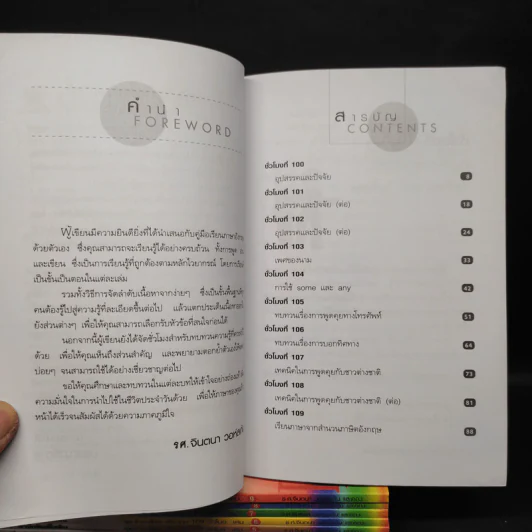 คำนำ
FOREWORD
ผู้เขียนมีความยินดียิ่งที่ได้นำเสนอกับคู่มือเรียนภาษาอังกฤษ
ด้วยตัวเอง ซึ่งคุณสามารถจะเรียนรู้ได้อย่างครบถ้วน ทั้งการพูด
และเขียน ซึ่งเป็นการเรียนรู้ที่ถูกต้องตามหลักไวยากรณ์ โดยการ
เป็นขั้นเป็นตอนในแต่ละเล่ม
รวมทั้งวิธีการจัดลำดับเนื้อหาจากง่ายๆ ซึ่งเป็นขั้นพื้นฐาน
คนต้องรู้ไปสู่ความรู้ที่ละเอียดขึ้นต่อไป แล้วแตกประเด็นเนื้อหา
ยังส่วนต่างๆ เพื่อให้คุณสามารถเลือกรับหัวข้อที่สนใจก่อนได้
นอกจากนี้ผู้เขียนยังได้จัดชั่วโมงสำหรับบททบทวนความรู้
ด้วย เพื่อให้คุณเห็นถึงส่วนสำคัญ และพยายามตอกย้ำตัวเอง
บ่อยๆ จนสามารถใช้ได้อย่างเชี่ยวชาญต่อไป
ขอให้คุณศึกษาและทบทวนในแต่ละบทให้เข้าใจอย่างถ่องแท้
ความมั่นใจในการนำไปใช้ในชีวิตประจำวันด้วย เพื่อให้ภาษาของคุณ
หน้าได้เร็วจนสัมผัสได้ด้วยความภาคภูมิใจ
รศ.จินตนา
สารบัญ
CONTENTS
ชั่วโมงที่ 100
อุปสรรคและปัจจัย 8
ชั่วโมงที่ 101
อุปสรรคและปัจจัย (ต่อ) 18
ชั่วโมงที่ 102
อุปสรรคและปัจจัย (ต่อ) 24
ชั่วโมงที่ 103
เพศของนาม 33
ชั่วโมงที่ 104
การใช้ some และ any 42
ชั่วโมงที่ 105
ทบทวนเรื่องการพูดคุยทางโทรศัพท์ 51
ชั่วโมงที่ 106
ทบทวนเรื่องการบอกทิศทาง 64
ชั่วโมงที่ 107
เทคนิคในการพูดคุยกับชาวต่างชาติ 73
ชั่วโมงที่ 108
เทคนิคในการพูดคุยกับชาวต่างชาติ (ต่อ) 81
ชั่วโมงที่ 109
เรียนภาษาจากสำนวนภาษิตอังกฤษ 88